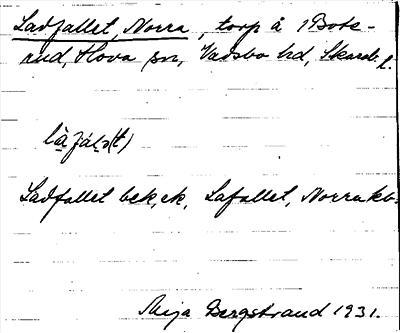 Ladfallet, Norra, torp å 1 Bote-
rud, Hova sn, Vadsbo hd, Skarab. l.
Ladfallet bek, ek, Lafallet, Norra kb.
Mija Bergstrand 1931.